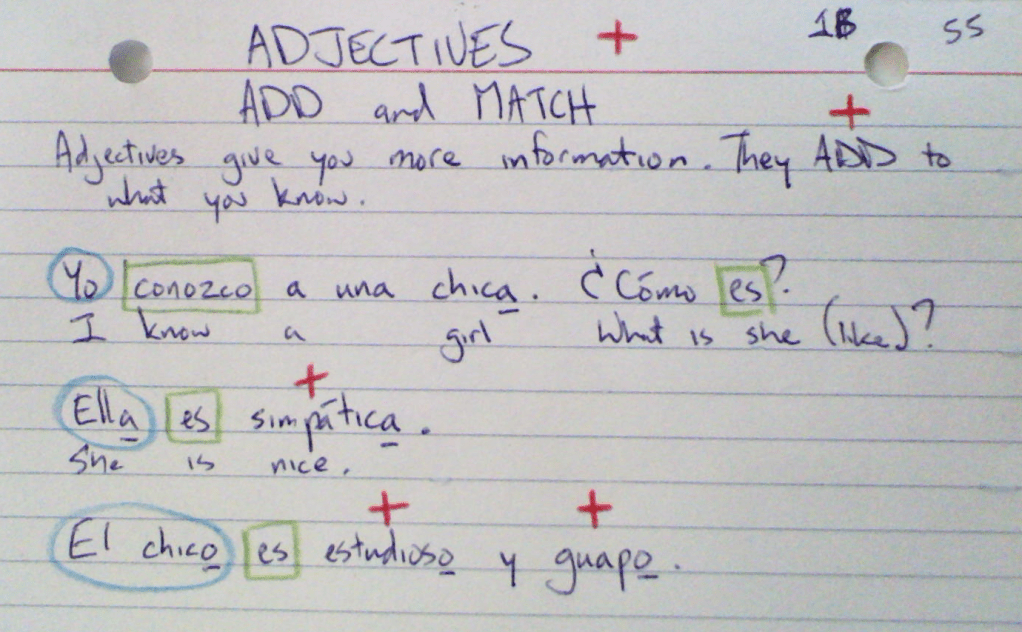 ADJECTIVES + 1B SS
ADD and MATCH +
Adjectives give you more information. They ADD to
what you know.
Yo conozco a una chica. ¿Cómo es?
I know a girl What is she (like)?
+
Ella es simpática.
She is nice.
+ +
El chico es estudioso y guapo.